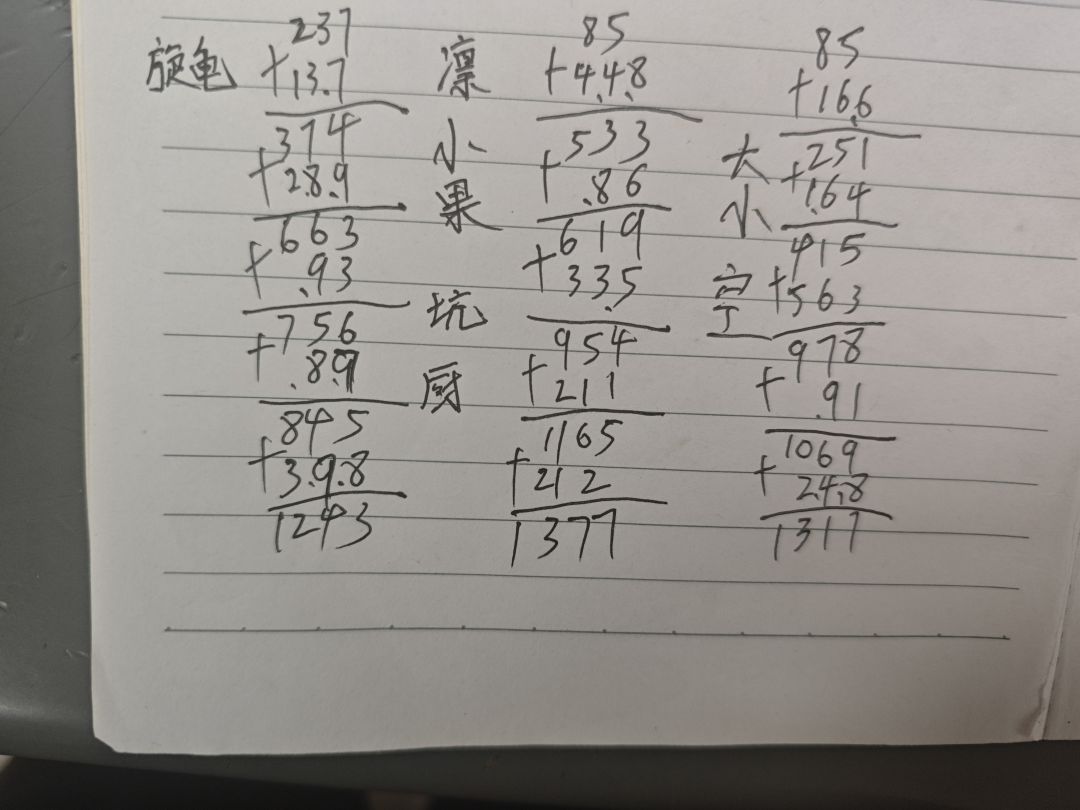 旋龟
237
+13.7
374
+28.9
663
+.93
756
+.89
845
+3.9.8
1243
凛小果
坑厨
85
+4.4.8
533
+.86
619
+33.5
954
+211
1165
+212
1377
大小
空
85
+16.6
251
+1.64
415
+563
978
+.91
1069
+24.8
1317